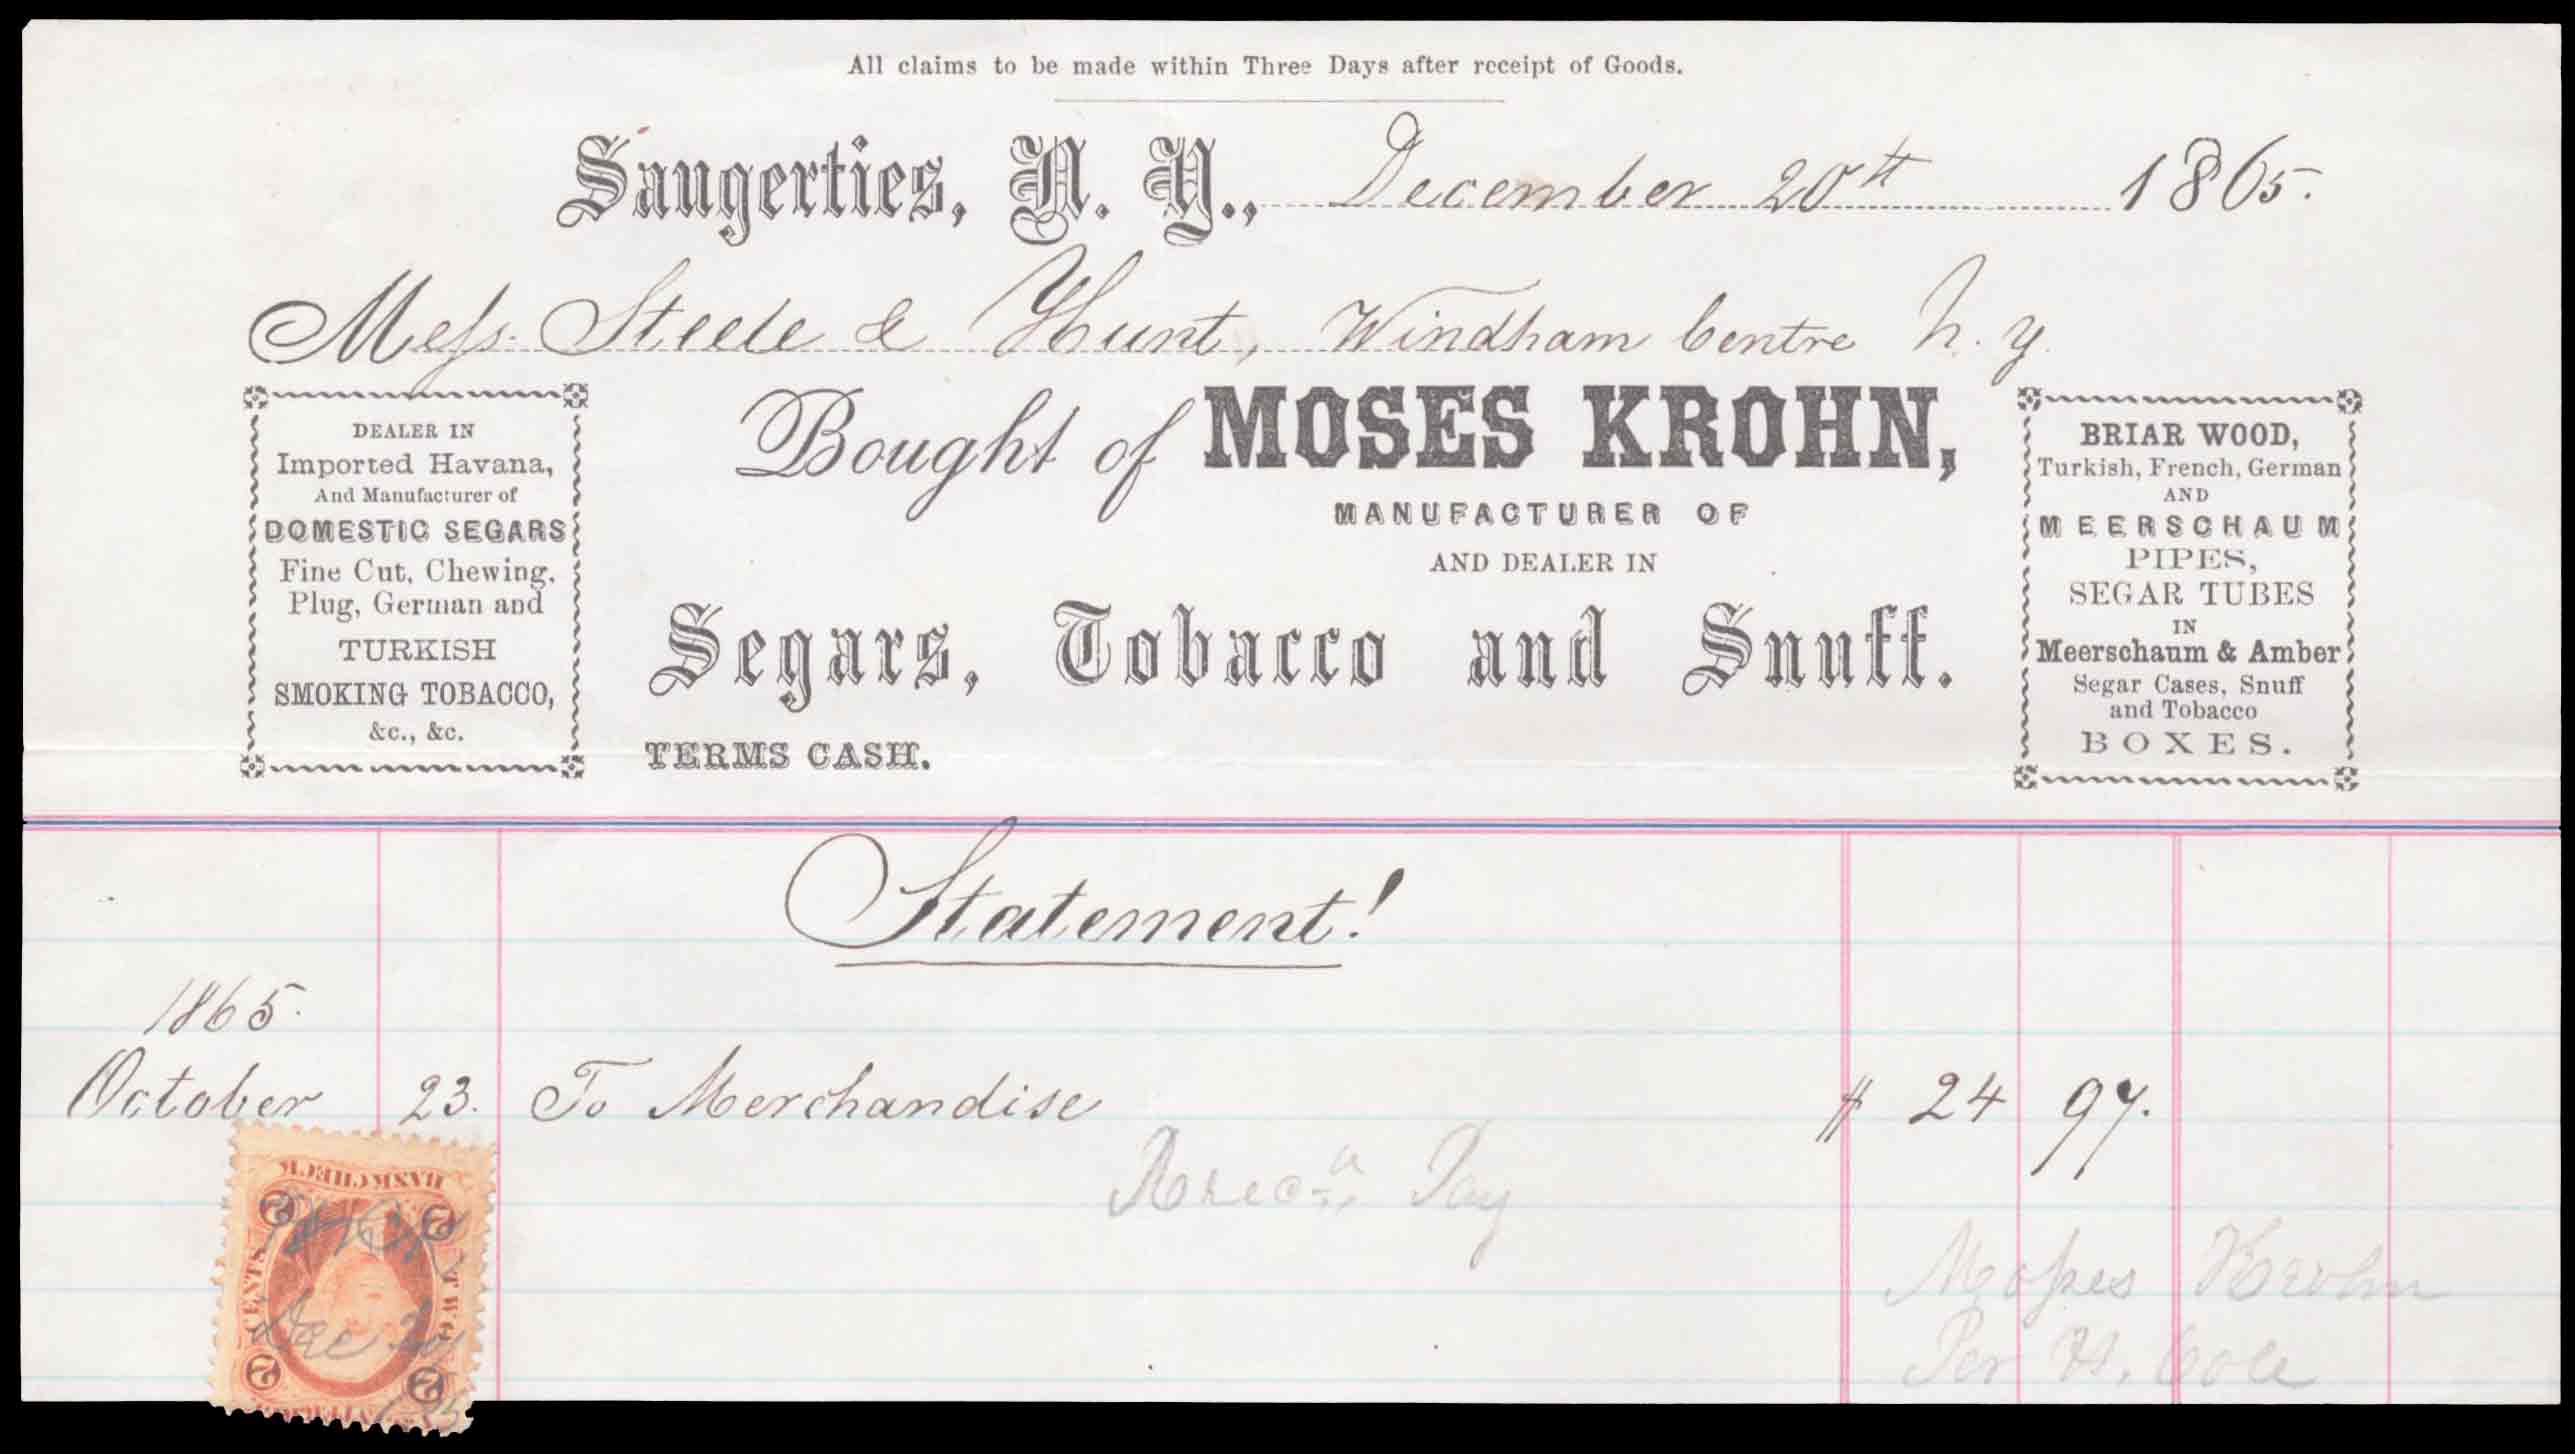 All claims to be made within Three Days after receipt of Goods.
Saugerties, N. Y., December 20th 1865.
Mess. Steele & Hunt, Windham Centre N. Y.
DEALER IN
Imported Havana,
And Manufacturer of
DOMESTIC SEGARS
Fine Cut, Chewing,
Plug, German and
TURKISH
SMOKING TOBACCO,
&c., &c.
Bought of MOSES KROHN,
MANUFACTURER OF
AND DEALER IN
Segars, Tobacco and Snuff.
TERMS CASH.
BRIAR WOOD,
Turkish, French, German
AND
MEERSCHAUM
PIPES,
SEGAR TUBES
IN
Meerschaum & Amber
Segar Cases, Snuff
and Tobacco
BOXES.
Statement!
1865.
October 23. To Merchandise $ 24 97.
Recd Pay
Moses Krohn
Per H. Cole
2 2
CENTS TWO
Dec 20
2 2